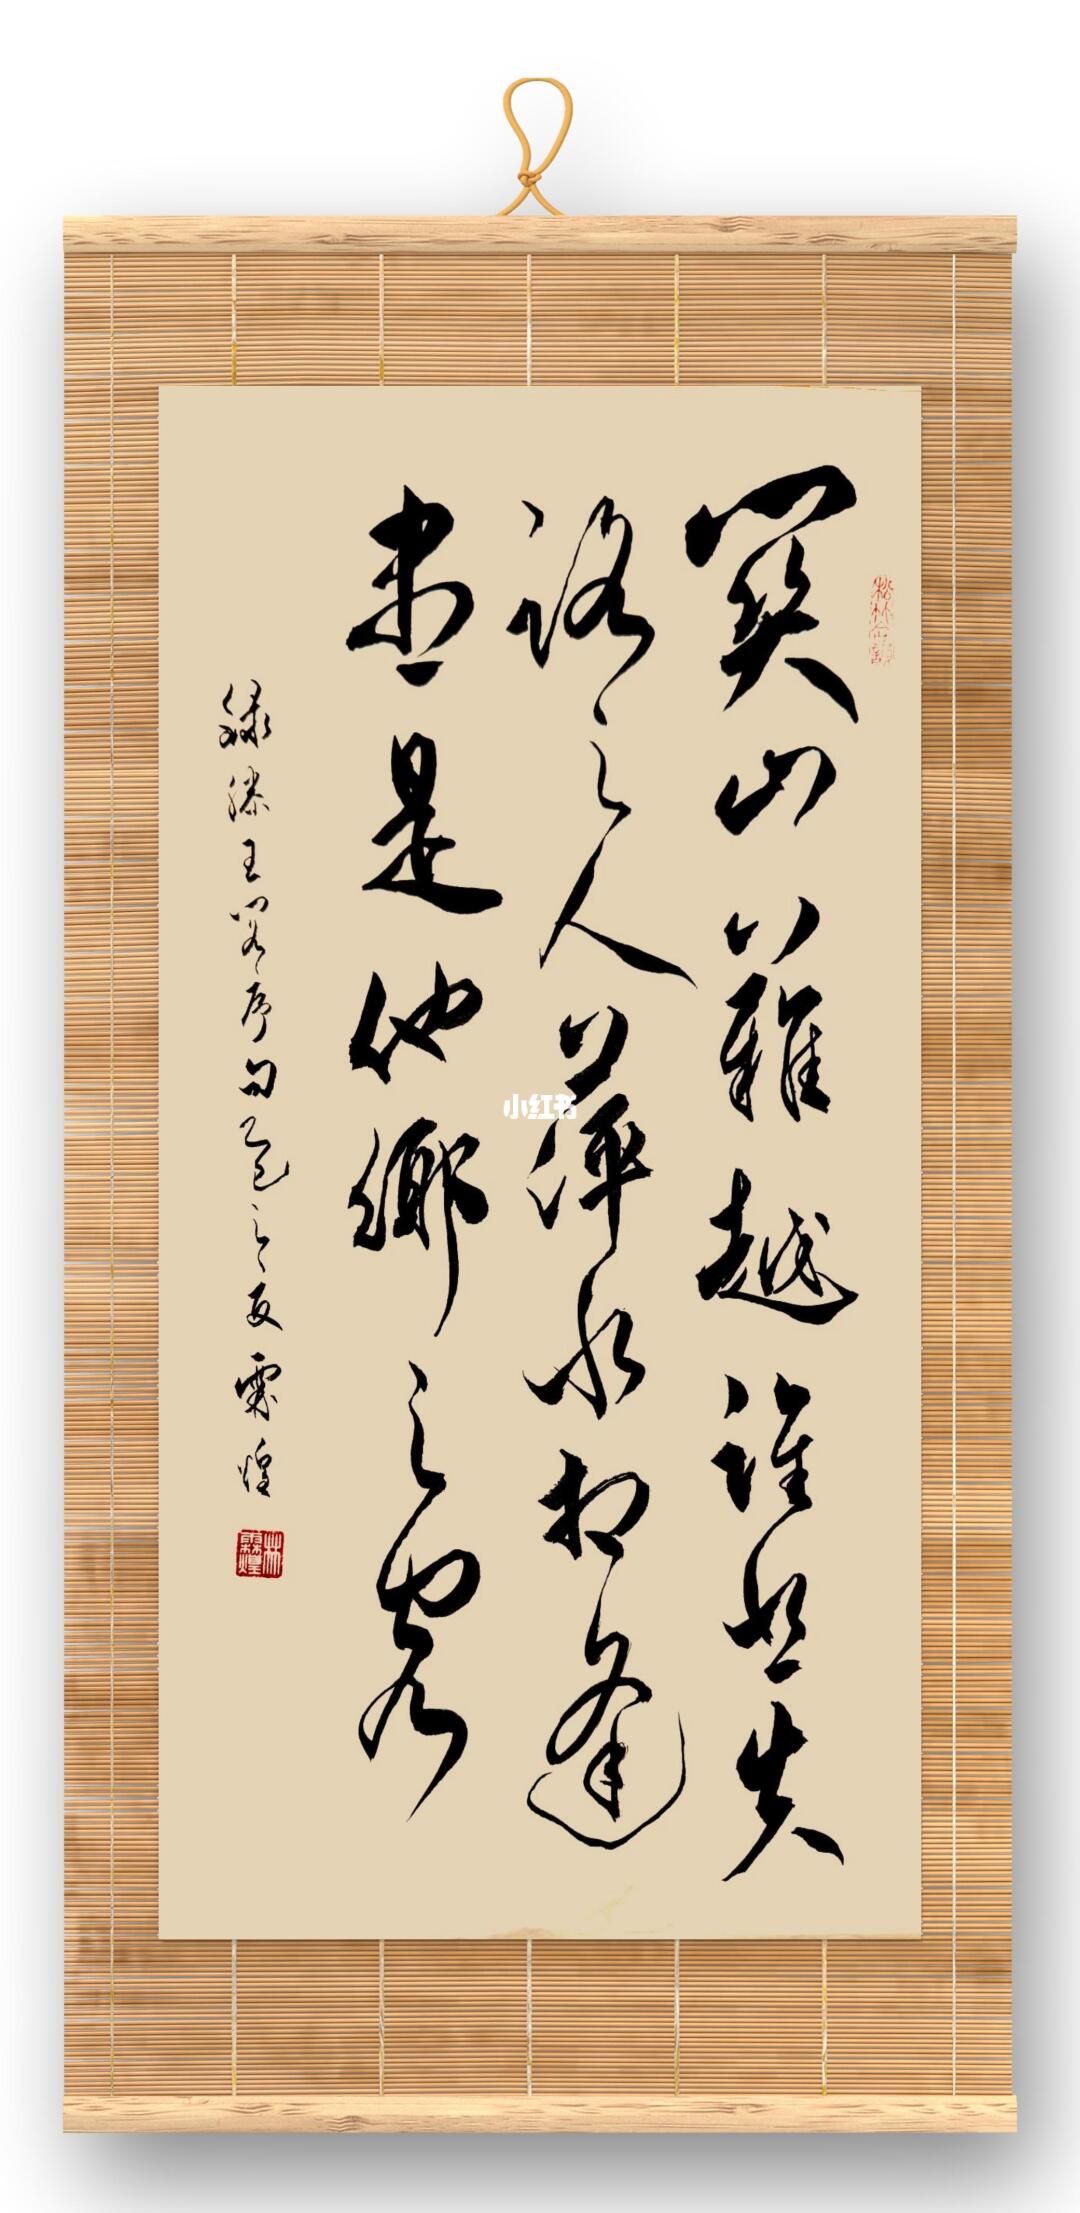 關山難越誰悲失
路之人萍水相逢
盡是他鄉之客
錄滕王閣序句乙巳之夏霖煌
林霖煌
小红书